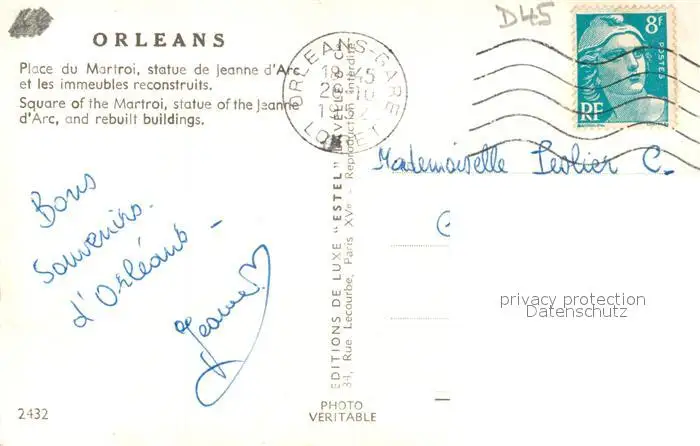 D45
ORLEANS
Place du Martroi, statue de Jeanne d'Arc
et les immeubles reconstruits.
Square of the Martroi, statue of the Jeanne
d'Arc, and rebuilt buildings.
ORLEANS-GARE
18 45
LOIRET
8F
POSTES
RF
Mademoiselle C.
Bons
Souvenirs
d'Orléans -
Jeanne
EDITIONS DE LUXE "ESTEL"
34, Rue Lecourbe, Paris XVe - Reproduction interdite
privacy protection
Datenschutz
2432
PHOTO
VERITABLE